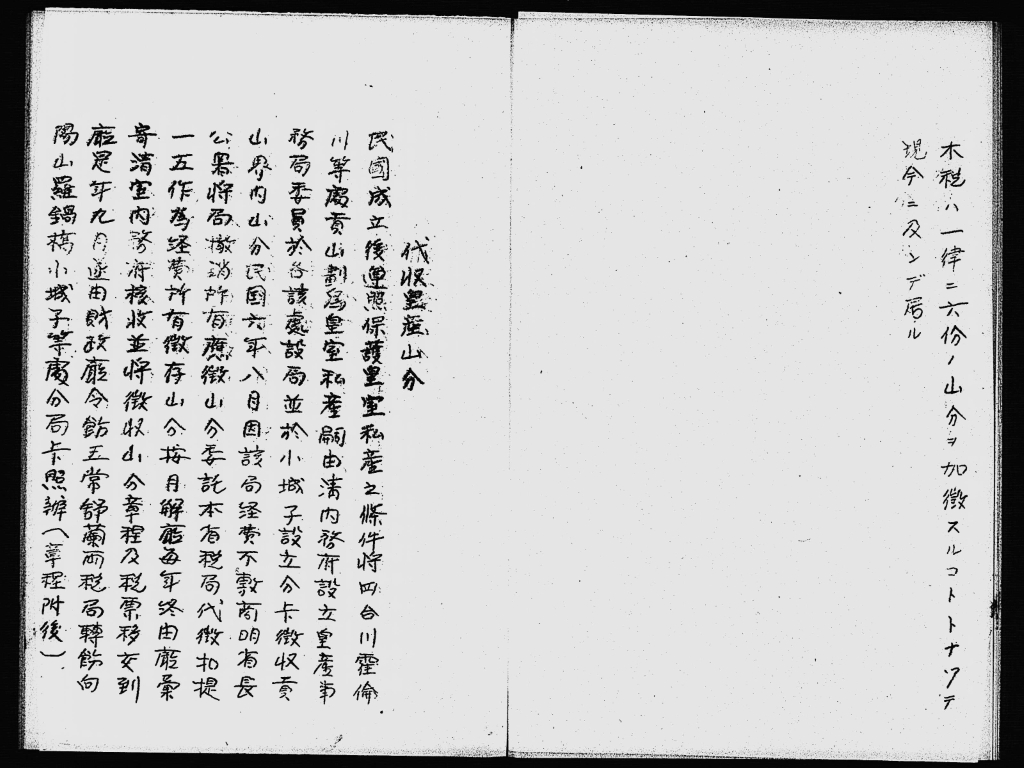 木税ハ一律ニ六份ノ山分ヲ加徴スルコトトナツテ
現今ニ及ンデ居ル
代收皇産山分
民國成立後遵照保護皇室私産之條件將四合川霍倫
川等處貢山劃為皇室私産嗣由清内務府設立皇産事
務局委員於各該處設局並於小城子設立分卡徴収貢
山界内山分民国六年八月因該局経費不敷商明省長
公署将局撤消所有應徴山分委託本省税局代徴扣提
一五作為経費所有徴存山分按月解廳每年终由廳彙
寄清室内務府核收並将徴収山分章程及税票移交到
廳是年九月遂由財政廳令飭五常舒蘭両税局轉飭向
陽山羅鍋橋小城子等處分局卡照辦（章程附後）